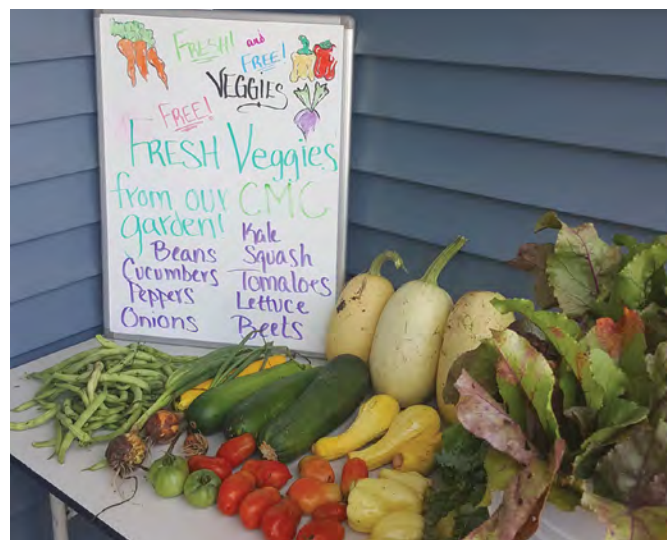 FRESH! and
FREE!
VEGGIES
FREE!
FRESH Veggies
from our CMC
garden!
Beans
Cucumbers
Peppers
Onions
Kale
Squash
Tomatoes
Lettuce
Beets